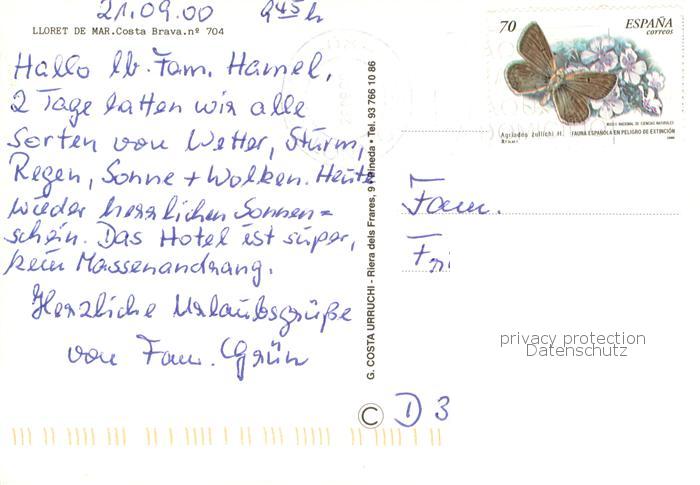 21.09.00 9 45 h
LLORET DE MAR.Costa Brava.nº 704
Hallo lb. Fam. Hamel,
2 Tage hatten wir alle
Sorten von Wetter, Sturm,
Regen, Sonne + Wolken. Heute
wieder herrlichen Sonnen=
schein. Das Hotel ist super,
kein Massenandrang.
Herzliche Urlaubsgrüße
von Fam. Grün
G. COSTA URRUCHI - Riera dels Frares, 9 Pineda • Tel. 93 766 10 86
70 ESPAÑA
CORREOS
MUSEO NACIONAL DE CIENCIAS NATURALES
Agriades zullichi H. FAUNA ESPAÑOLA EN PELIGRO DE EXTINCIÓN
Fam.
privacy protection
Datenschutz
© D 3